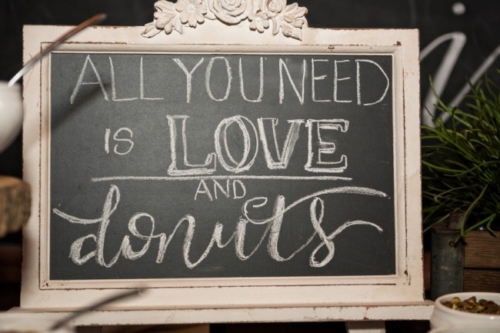 ALL YOU NEED
IS LOVE
AND
donuts